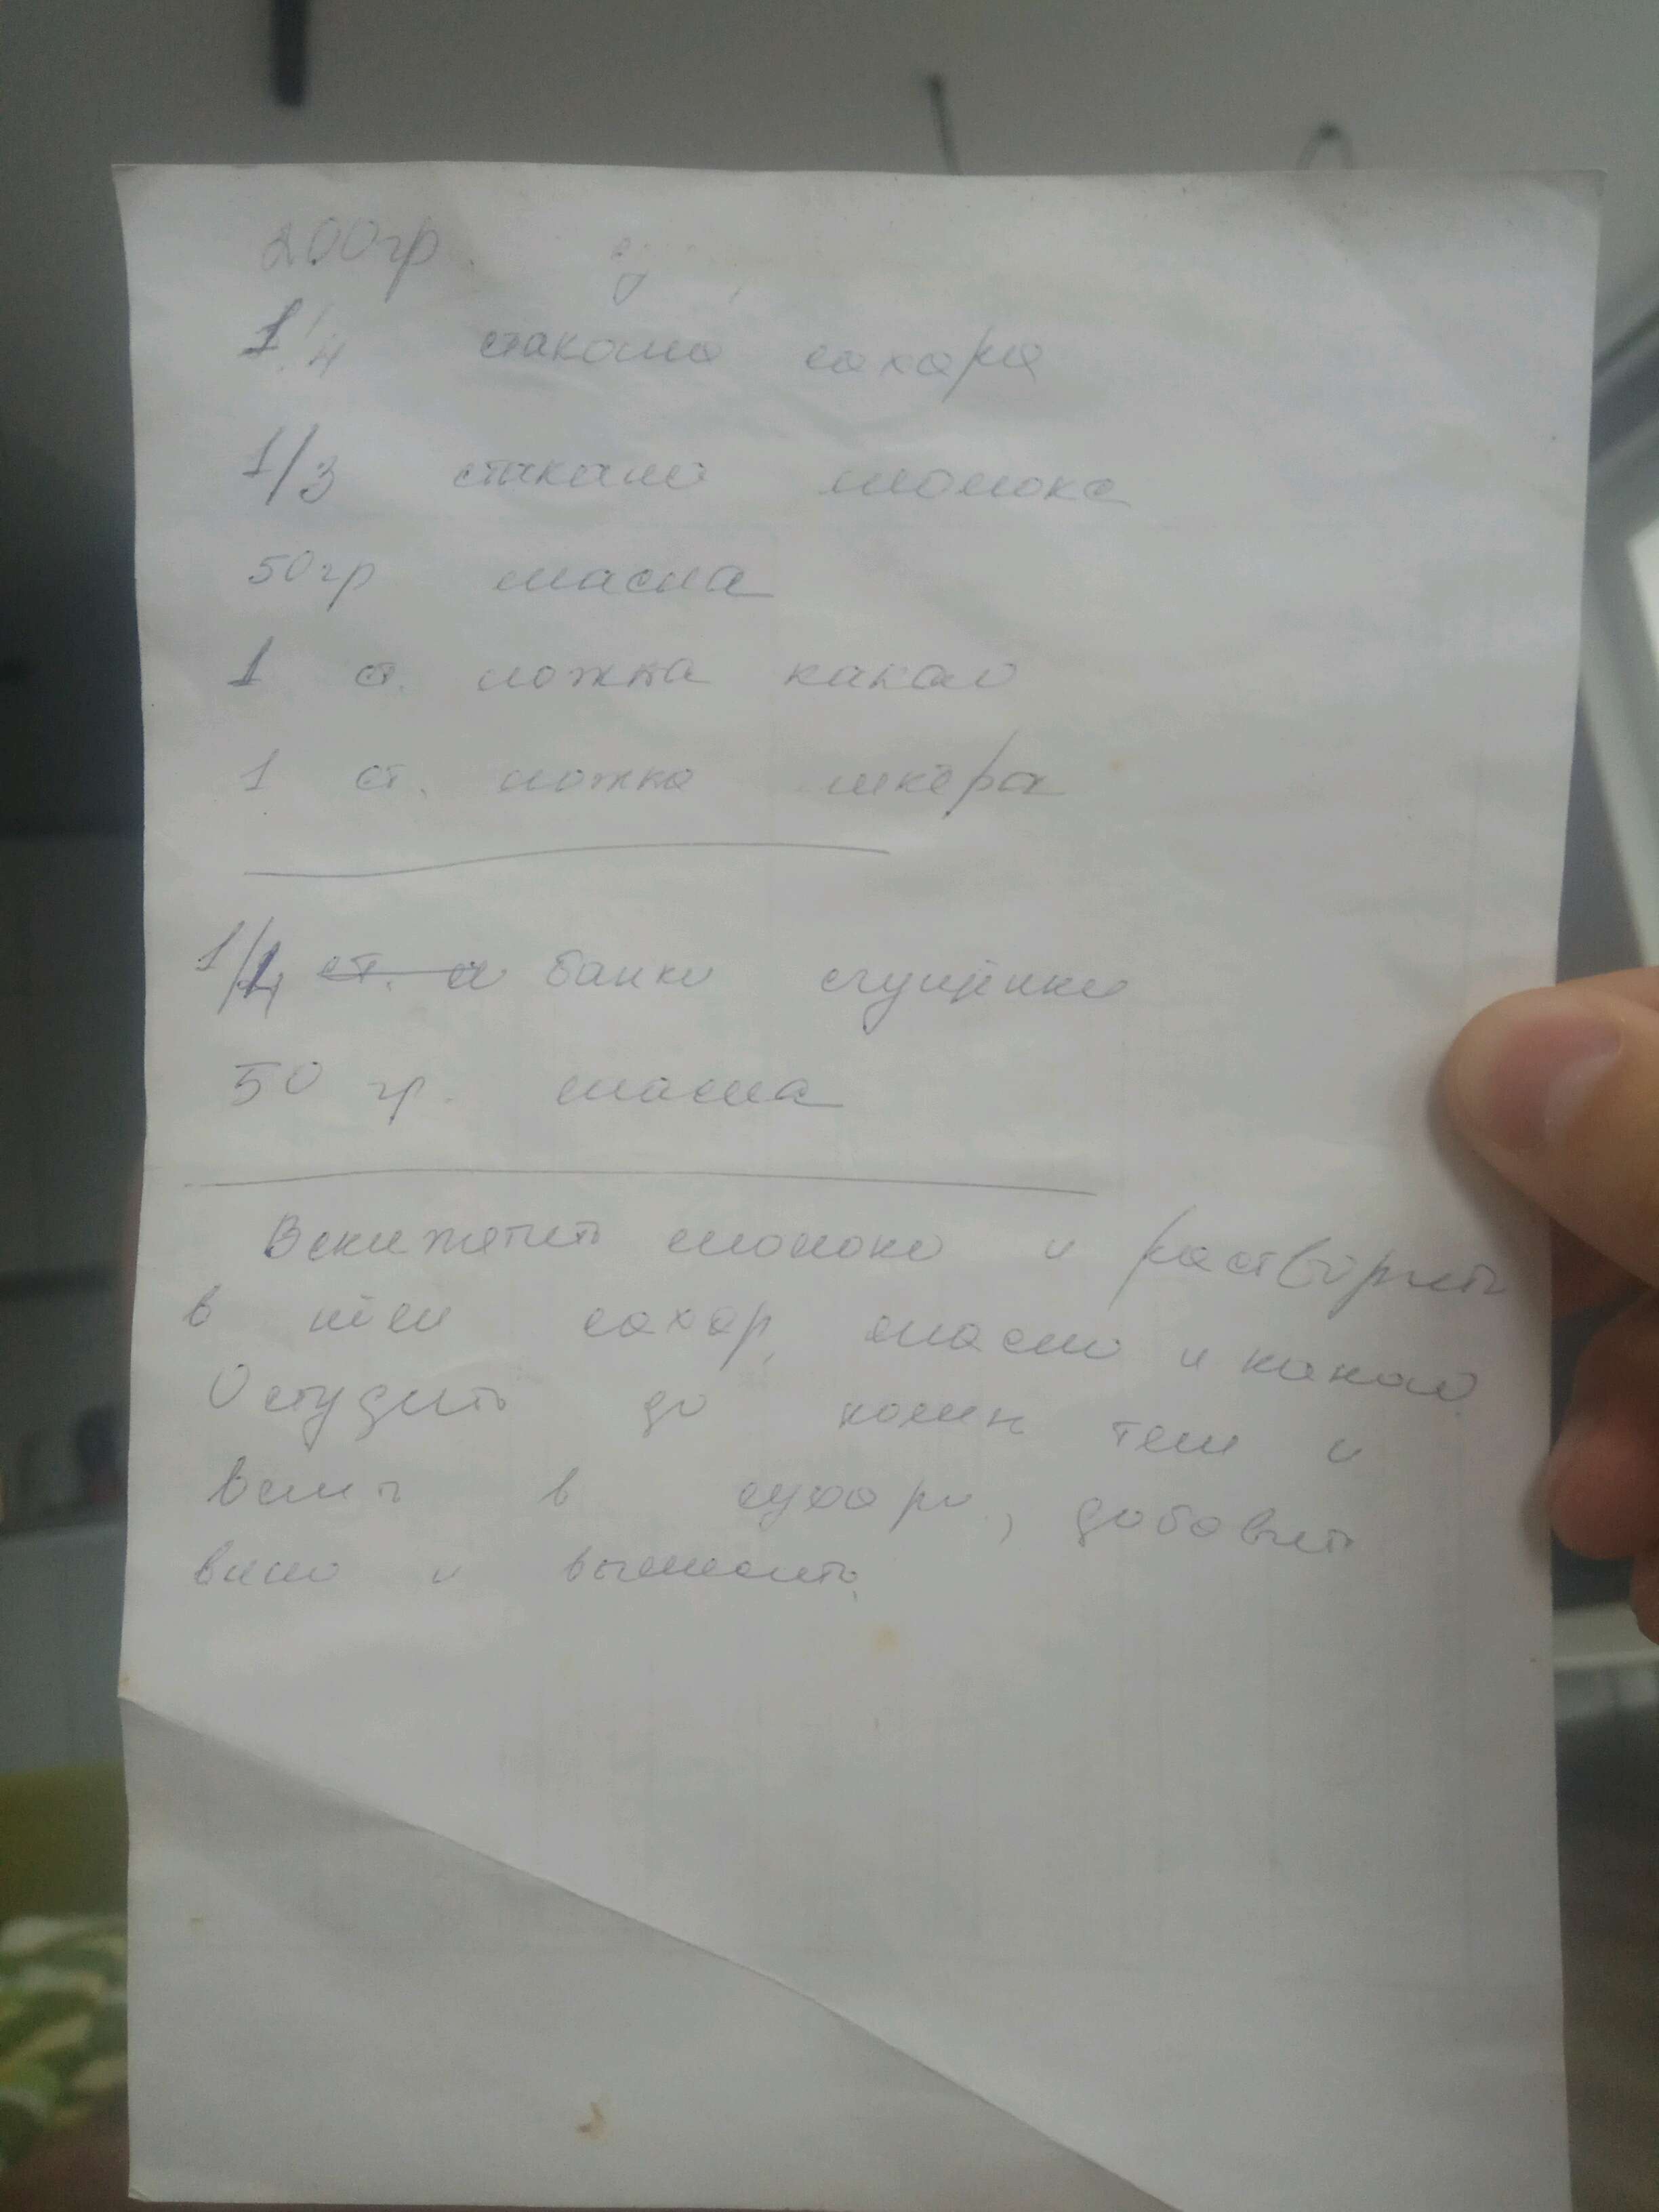 200гр.
1/4 стакана сахара
1/3 стакана молока
50гр масла
1 ст. ложка какао
1 ст. ложка ликёра
1/4 ст. а банки сгущёнки
50 гр. масла
Вскипятить молоко и растворить
в нём сахар, масло и какао.
Остудить до комн тем и
влить в сухари, добавить
вино и вымесить.